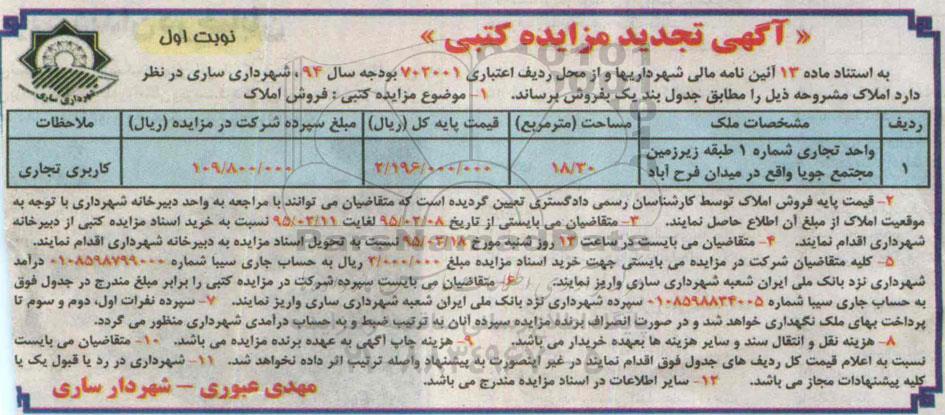 « آگهی تجدید مزایده کتبی »
نوبت اول
شهرداری ساری
به استناد ماده ۱۳ آئین نامه مالی شهرداریها و از محل ردیف اعتباری ۷۰۲۰۰۱ بودجه سال ۹۴ ، شهرداری ساری در نظر
دارد املاک مشروحه ذیل را مطابق جدول بند یک بفروش برساند. ۱- موضوع مزایده کتبی : فروش املاک
ردیف مشخصات ملک مساحت (مترمربع) قیمت پایه کل (ریال) مبلغ سپرده شرکت در مزایده (ریال) ملاحظات
۱ واحد تجاری شماره ۱ طبقه زیرزمین مجتمع جویا واقع در میدان فرح آباد ۱۸/۳۰ ۲/۱۹۶/۰۰۰/۰۰۰ ۱۰۹/۸۰۰/۰۰۰ کاربری تجاری
۲- قیمت پایه فروش املاک توسط کارشناسان رسمی دادگستری تعیین گردیده است که متقاضیان می توانند با مراجعه به واحد دبیرخانه شهرداری با توجه به
موقعیت املاک از مبلغ آن اطلاع حاصل نمایند. ۳- متقاضیان می بایستی از تاریخ ۹۵/۰۲/۰۸ لغایت ۹۵/۰۲/۱۱ نسبت به خرید اسناد مزایده کتبی از دبیرخانه
شهرداری اقدام نمایند. ۴- متقاضیان می بایست در ساعت ۱۳ روز شنبه مورخ ۹۵/۰۲/۱۸ نسبت به تحویل اسناد مزایده به دبیرخانه شهرداری اقدام نمایند.
۵- کلیه متقاضیان شرکت در مزایده می بایستی جهت خرید اسناد مزایده مبلغ ۲/۰۰۰/۰۰۰ ریال به حساب جاری سیبا شماره ۰۱۰۸۵۹۸۷۹۹۰۰۰ درآمد
شهرداری نزد بانک ملی ایران شعبه شهرداری ساری واریز نمایند. ۶- متقاضیان می بایست سپرده شرکت در مزایده کتبی را برابر مبلغ مندرج در جدول فوق
به حساب جاری سیبا شماره ۰۱۰۸۵۹۸۸۳۴۰۰۵ سپرده شهرداری نزد بانک ملی ایران شعبه شهرداری ساری واریز نمایند. ۷- سپرده نفرات اول، دوم و سوم تا
پرداخت بهای ملک نگهداری خواهد شد و در صورت انصراف برنده مزایده سپرده آنان به ترتیب ضبط و به حساب درآمدی شهرداری منظور می گردد.
۸- هزینه نقل و انتقال سند و سایر هزینه ها بعهده خریدار می باشد. ۹- هزینه چاپ آگهی به عهده برنده مزایده می باشد. ۱۰- متقاضیان می بایست
نسبت به اعلام قیمت کل ردیف های جدول فوق اقدام نمایند در غیر اینصورت به پیشنهاد واصله ترتیب اثر داده نخواهد شد. ۱۱- شهرداری در رد یا قبول یک یا
کلیه پیشنهادات مجاز می باشد. ۱۲- سایر اطلاعات در اسناد مزایده مندرج می باشد.
مهدی عبوری – شهردار ساری